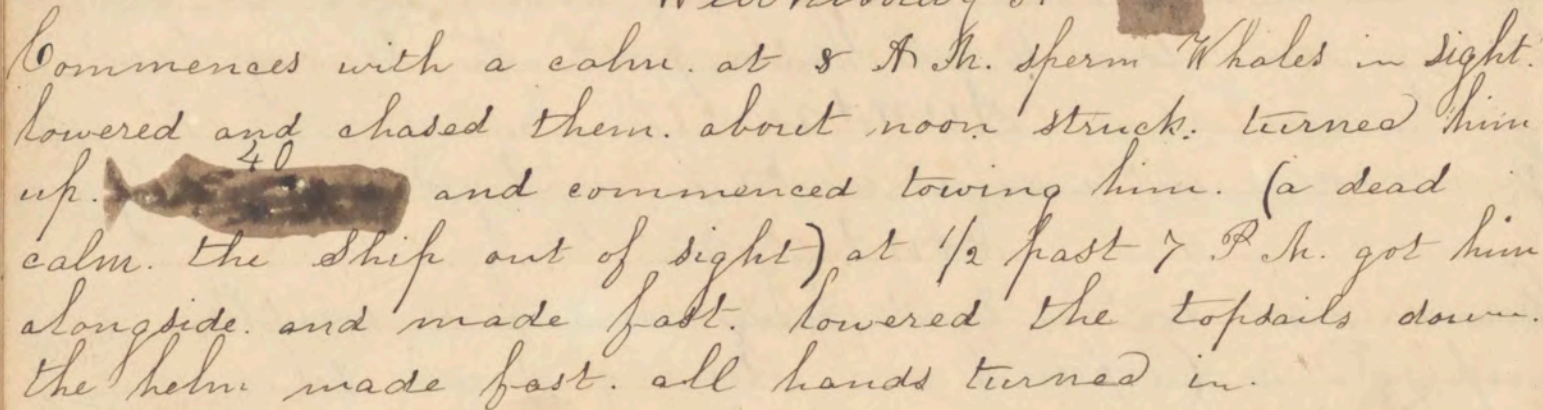 Wednesday
Commences with a calm. at 8 A M. sperm Whales in sight.
lowered and chased them. about noon struck. turned him
up. 40 and commenced towing him. (a dead
calm. the Ship out of sight) at 1/2 past 7 P M. got him
alongside. and made fast. lowered the topsails down.
the helm made fast. all hands turned in.